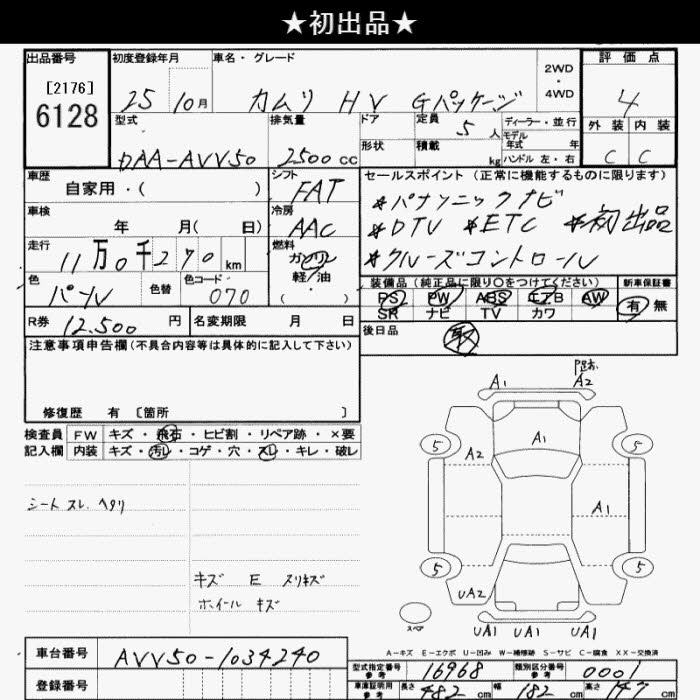 ★初出品★
出品番号
[2176]
6128
初度登録年月
25 10月
車名・グレード
カムリ HV Gパッケージ
2WD
・
4WD
評価点
4
外装 内装
C C
型式
DAA-AVV50
排気量
2500 cc
ドア
形状
定員
5人
積載
kg
ディーラー・並行
モデル
年式 年
ハンドル 左・右
車歴
自家用・( )
シフト
FAT
セールスポイント (正常に機能するものに限ります)
*パナソニックナビ
*DTV *ETC *初出品
*クルーズコントロール
車検
年 月( 日)
冷房
AAC
走行
11万0千270km
燃料
ガソリン
軽/油
・
( )
色
パール
色替
色コード
070
装備品 (純正品に限り〇をつけてください)
PS PW ABS エアB AW
SR ナビ TV カワ
新車保証書
有 無
R券 12,500 円
名変期限 月 日
後日品
取
注意事項申告欄(不具合内容等は具体的に記入して下さい)
修復歴 有 〔箇所 〕
検査員
記入欄
FW キズ・飛石・ヒビ割・リペア跡・×要
内装 キズ・汚レ・コゲ・穴・スレ・キレ・破レ
シート スレ、ヘタリ
キズ E スリキズ
ホイール キズ
A1 A2
A1
5 A2 5
A1
5 5
UA2
スペア
UA1 UA1 UA1
A−キズ E−エクボ U−凹み W−補修跡 S−サビ C−腐食 XX−交換済
車台番号
AVV50-1034240
登録番号
型式指定番号
参考
16968
類別区分番号
参考
0001
車庫証明用
参考
長さ 482 cm 幅 182 cm 高さ 147 cm